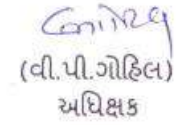 (વી.પી.ગોહિલ)
અધિક્ષક